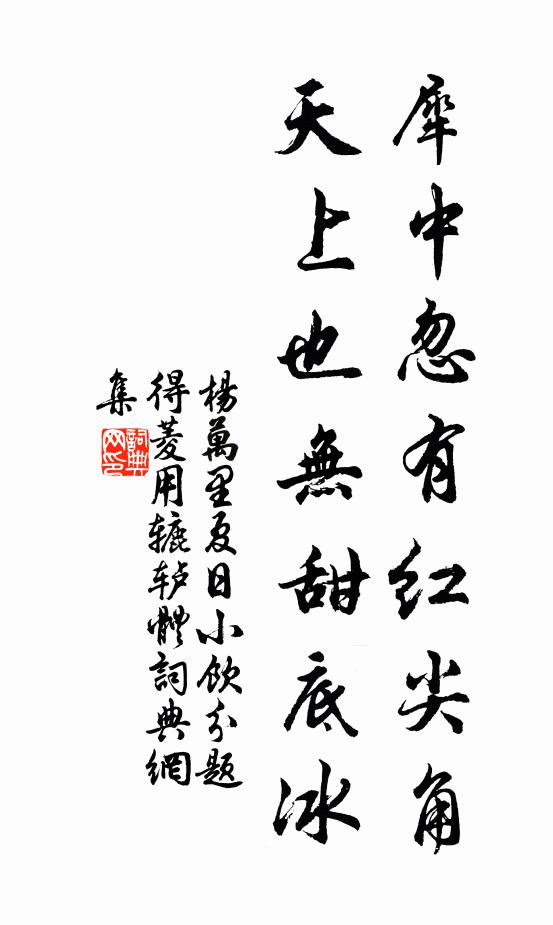 犀中忽有红尖角
天上也無甜底冰
楊萬里夏日小飲分題
得菱用辘轳體詞典網
集
詞典
网印